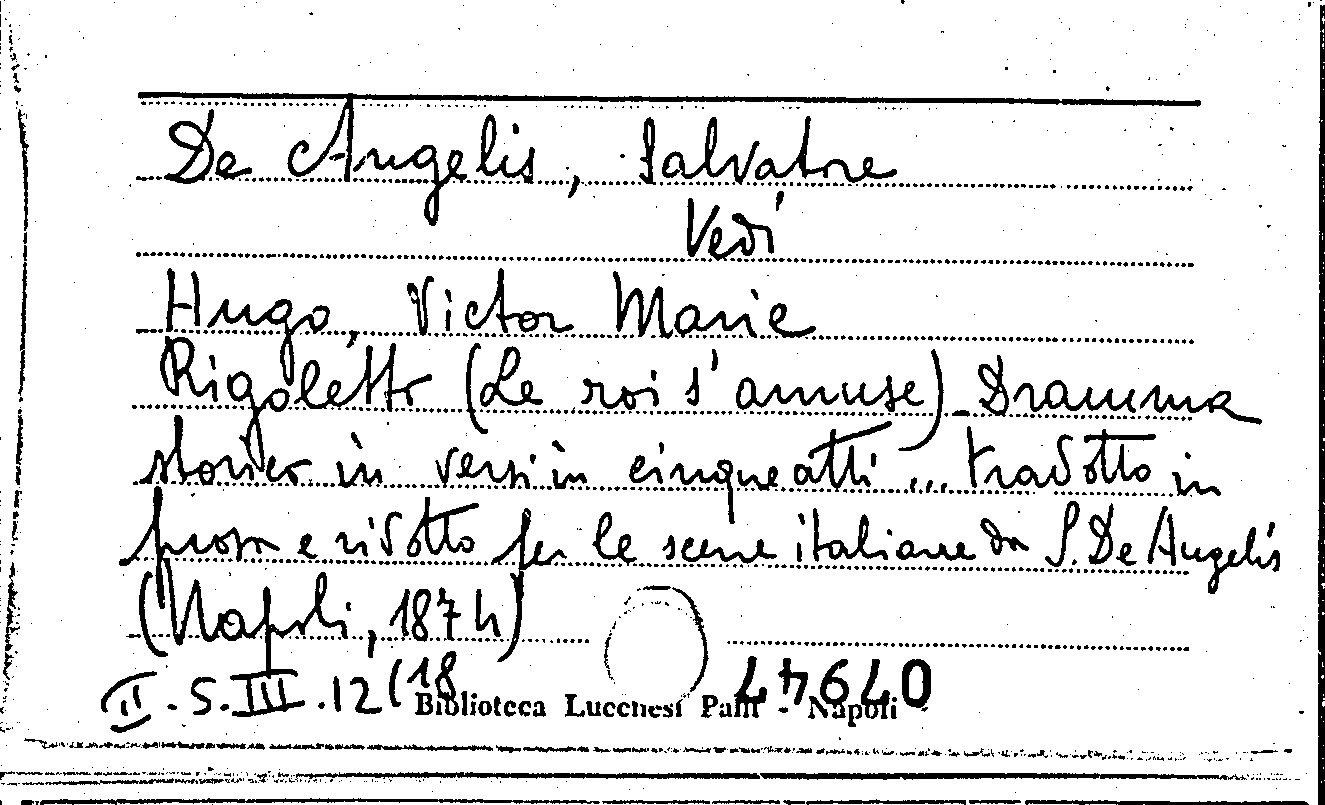 De Angelis, Salvatore
Vedi
Hugo, Victor Marie
Rigoletto (Le roi s'amuse) - Dramma
storico in versi in cinque atti ... tradotto in
prosa e ridotto per le scene italiane da S. De Angelis
(Napoli, 1874)
II. 5. III. 12 (18
Biblioteca Lucchesi Palli - Napoli